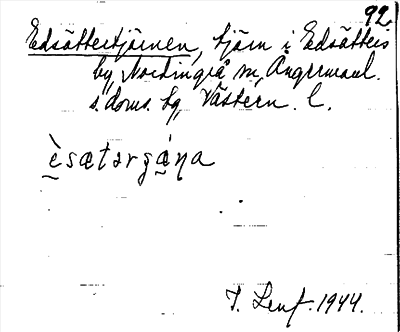 92
Edsättertjärnen, tjärn i Edsätters
by, Nordingrå sn, Ångermanl.
s. doms. hg, Västern. l.
èsætərgá̱ŋa
T. Lenf. 1944.